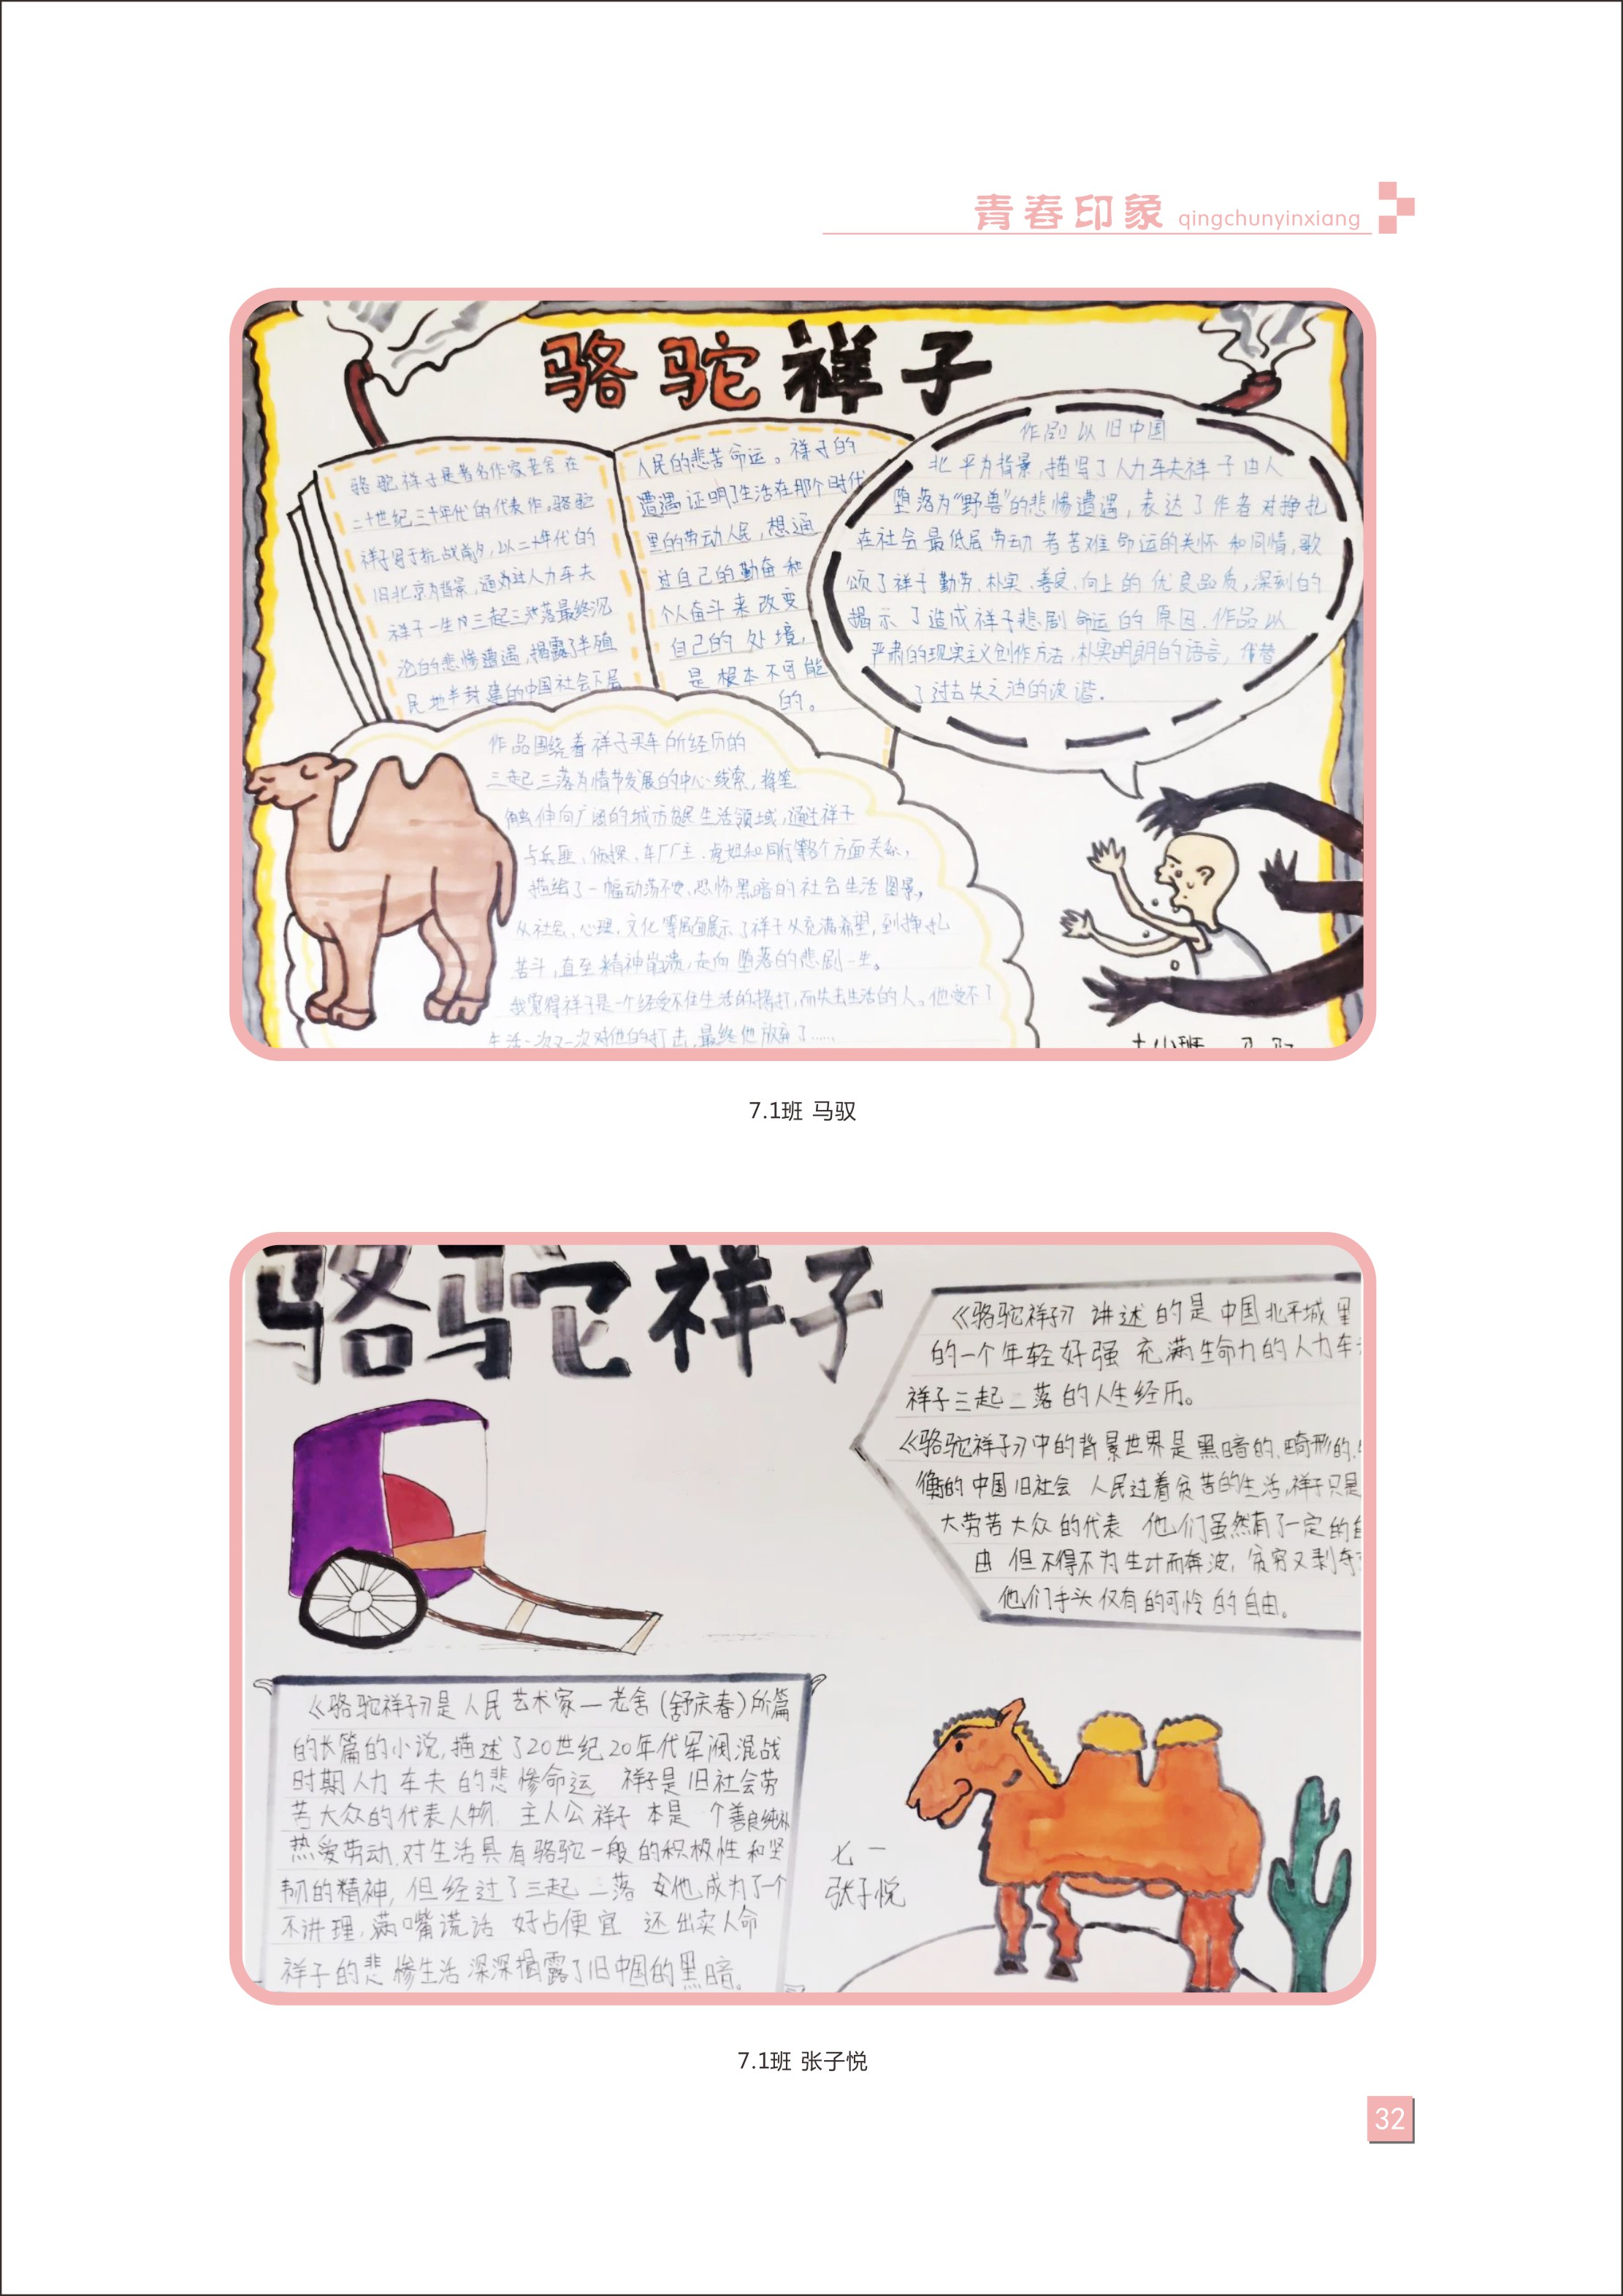 青春印象 qingchunyinxiang
骆驼祥子
骆驼祥子是著名作家老舍在
二十世纪三十年代的代表作。骆驼
祥子写于抗战前夕,以二十年代的
旧北京为背景,通过人力车夫
祥子一生的三起三落最终沉
沦的悲惨遭遇,揭露了半殖
民地半封建的中国社会下层
人民的悲苦命运。祥子的
遭遇证明了生活在那个时代
里的劳动人民,想通
过自己的勤奋和
个人奋斗来改变
自己的处境,
是根本不可能
的。
作品以旧中国
北平为背景,描写了人力车夫祥子由人
堕落为“野兽”的悲惨遭遇,表达了作者对挣扎
在社会最低层劳动者苦难命运的关怀和同情,歌
颂了祥子勤劳、朴实、善良、向上的优良品质,深刻的
揭示了造成祥子悲剧命运的原因,作品以
严肃的现实主义创作方法,朴实明朗的语言,
了过
作品围绕着祥子买车所经历的
三起三落为情节发展的中心线索,将笔
触伸向广阔的城市贫民生活领域,通过祥子
与兵匪、侦探、车厂主、虎妞和同行等各个方面关系,
描绘了一幅动荡不安、恐怖黑暗的社会生活图景,
从社会、心理、文化等层面展示了祥子从充满希望,到挣扎
苦斗,直至精神崩溃,走向堕落的悲剧一生。
我觉得祥子是一个经受不住生活的捶打,而失去生活的人。他受不了
生活一次又一次对他的打击,最终他放弃了……
7.1班 马驭
骆驼祥子
《骆驼祥子》讲述的是中国北平城里
的一个年轻好强 充满生命力的人力车
祥子三起二落的人生经历。
《骆驼祥子》中的背景世界是黑暗的、畸形的、
衡的中国旧社会 人民过着贫苦的生活,祥子只是
大劳苦大众的代表 他们虽然有了一定的自
由 但不得不为生计而奔波,贫穷又剥夺
他们手头仅有的可怜的自由。
《骆驼祥子》是人民艺术家一老舍(舒庆春)所篇
的长篇的小说,描述了20世纪20年代军阀混战
时期人力车夫的悲惨命运 祥子是旧社会劳
苦大众的代表人物 主人公祥子 本是 个善良纯朴
热爱劳动,对生活具有骆驼一般的积极性和坚
韧的精神,但经过了三起二落 他成为了一个
不讲理,满嘴谎话 好占便宜 还出卖人命
祥子的悲惨生活深深揭露了旧中国的黑暗。
七一
张子悦
7.1班 张子悦
32